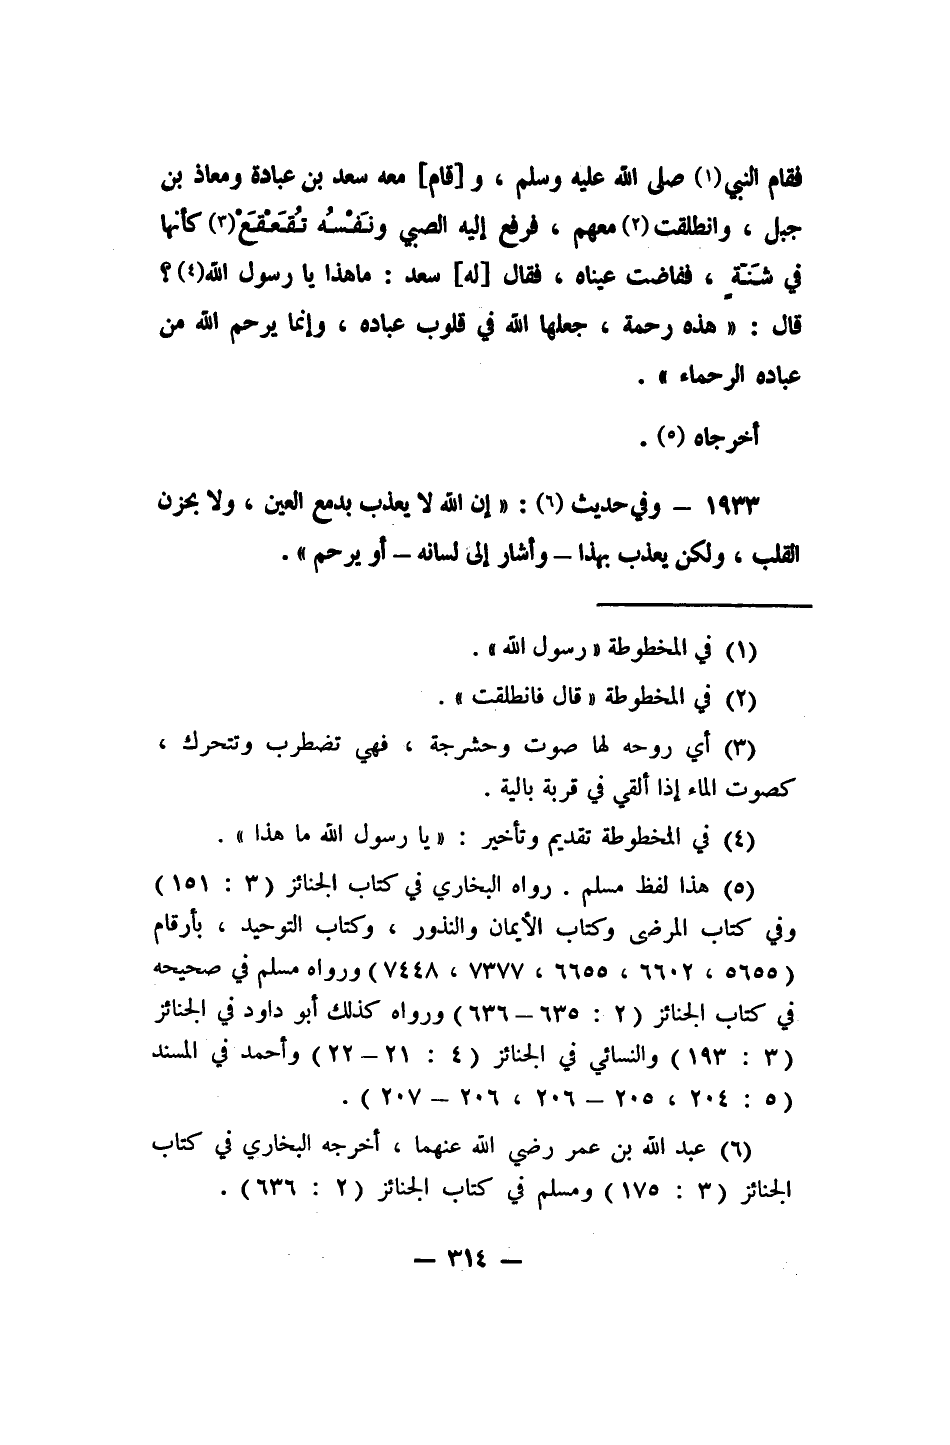 فقام النبي(١) صلى الله عليه وسلم ، و [قام] معه سعد بن عبادة ومعاذ بن
جبل ، وانطلقت(٢) معهم ، فرفع إليه الصبي ونَفْسُه تُقَعْقِعَْ(٣) كأنها
في شَنَةٍ ، ففاضت عيناه ، فقال [له] سعد : ماهذا يا رسول الله(٤) ؟
قال : « هذه رحمة ، جعلها الله في قلوب عباده ، وإنما يرحم الله من
عباده الرحماء » .
أخرجاه (٥) .
١٩٣٣ – وفي حديث (٦) : « إن الله لا يعذب بدمع العين ، ولا بحزن
القلب ، ولكن يعذب بهذا – وأشار إلى لسانه – أو يرحم » .
(١) في المخطوطة « رسول الله » .
(٢) في المخطوطة « قال فانطلقت » .
(٣) أي روحه لها صوت وحشرجة ، فهي تضطرب وتتحرك ،
كصوت الماء إذا ألقي في قربة بالية .
(٤) في المخطوطة تقديم وتأخير : « يا رسول الله ما هذا » .
(٥) هذا لفظ مسلم . رواه البخاري في كتاب الجنائز ( ٣ : ١٥١ )
وفي كتاب المرضى وكتاب الأيمان والنذور ، وكتاب التوحيد ، بأرقام
( ٥٦٥٥ ، ٦٦٠٢ ، ٦٦٥٥ ، ٧٣٧٧ ، ٧٤٤٨ ) ورواه مسلم في صحيحه
في كتاب الجنائز ( ٢ : ٦٣٥ – ٦٣٦ ) ورواه كذلك أبو داود في الجنائز
( ٣ : ١٩٣ ) والنسائي في الجنائز ( ٤ : ٢١ – ٢٢ ) وأحمد في المسند
( ٥ : ٢٠٤ ، ٢٠٥ – ٢٠٦ ، ٢٠٦ – ٢٠٧ ) .
(٦) عبد الله بن عمر رضي الله عنهما ، أخرجه البخاري في كتاب
الجنائز ( ٣ : ١٧٥ ) ومسلم في كتاب الجنائز ( ٢ : ٦٣٦ ) .
– ٣١٤ –